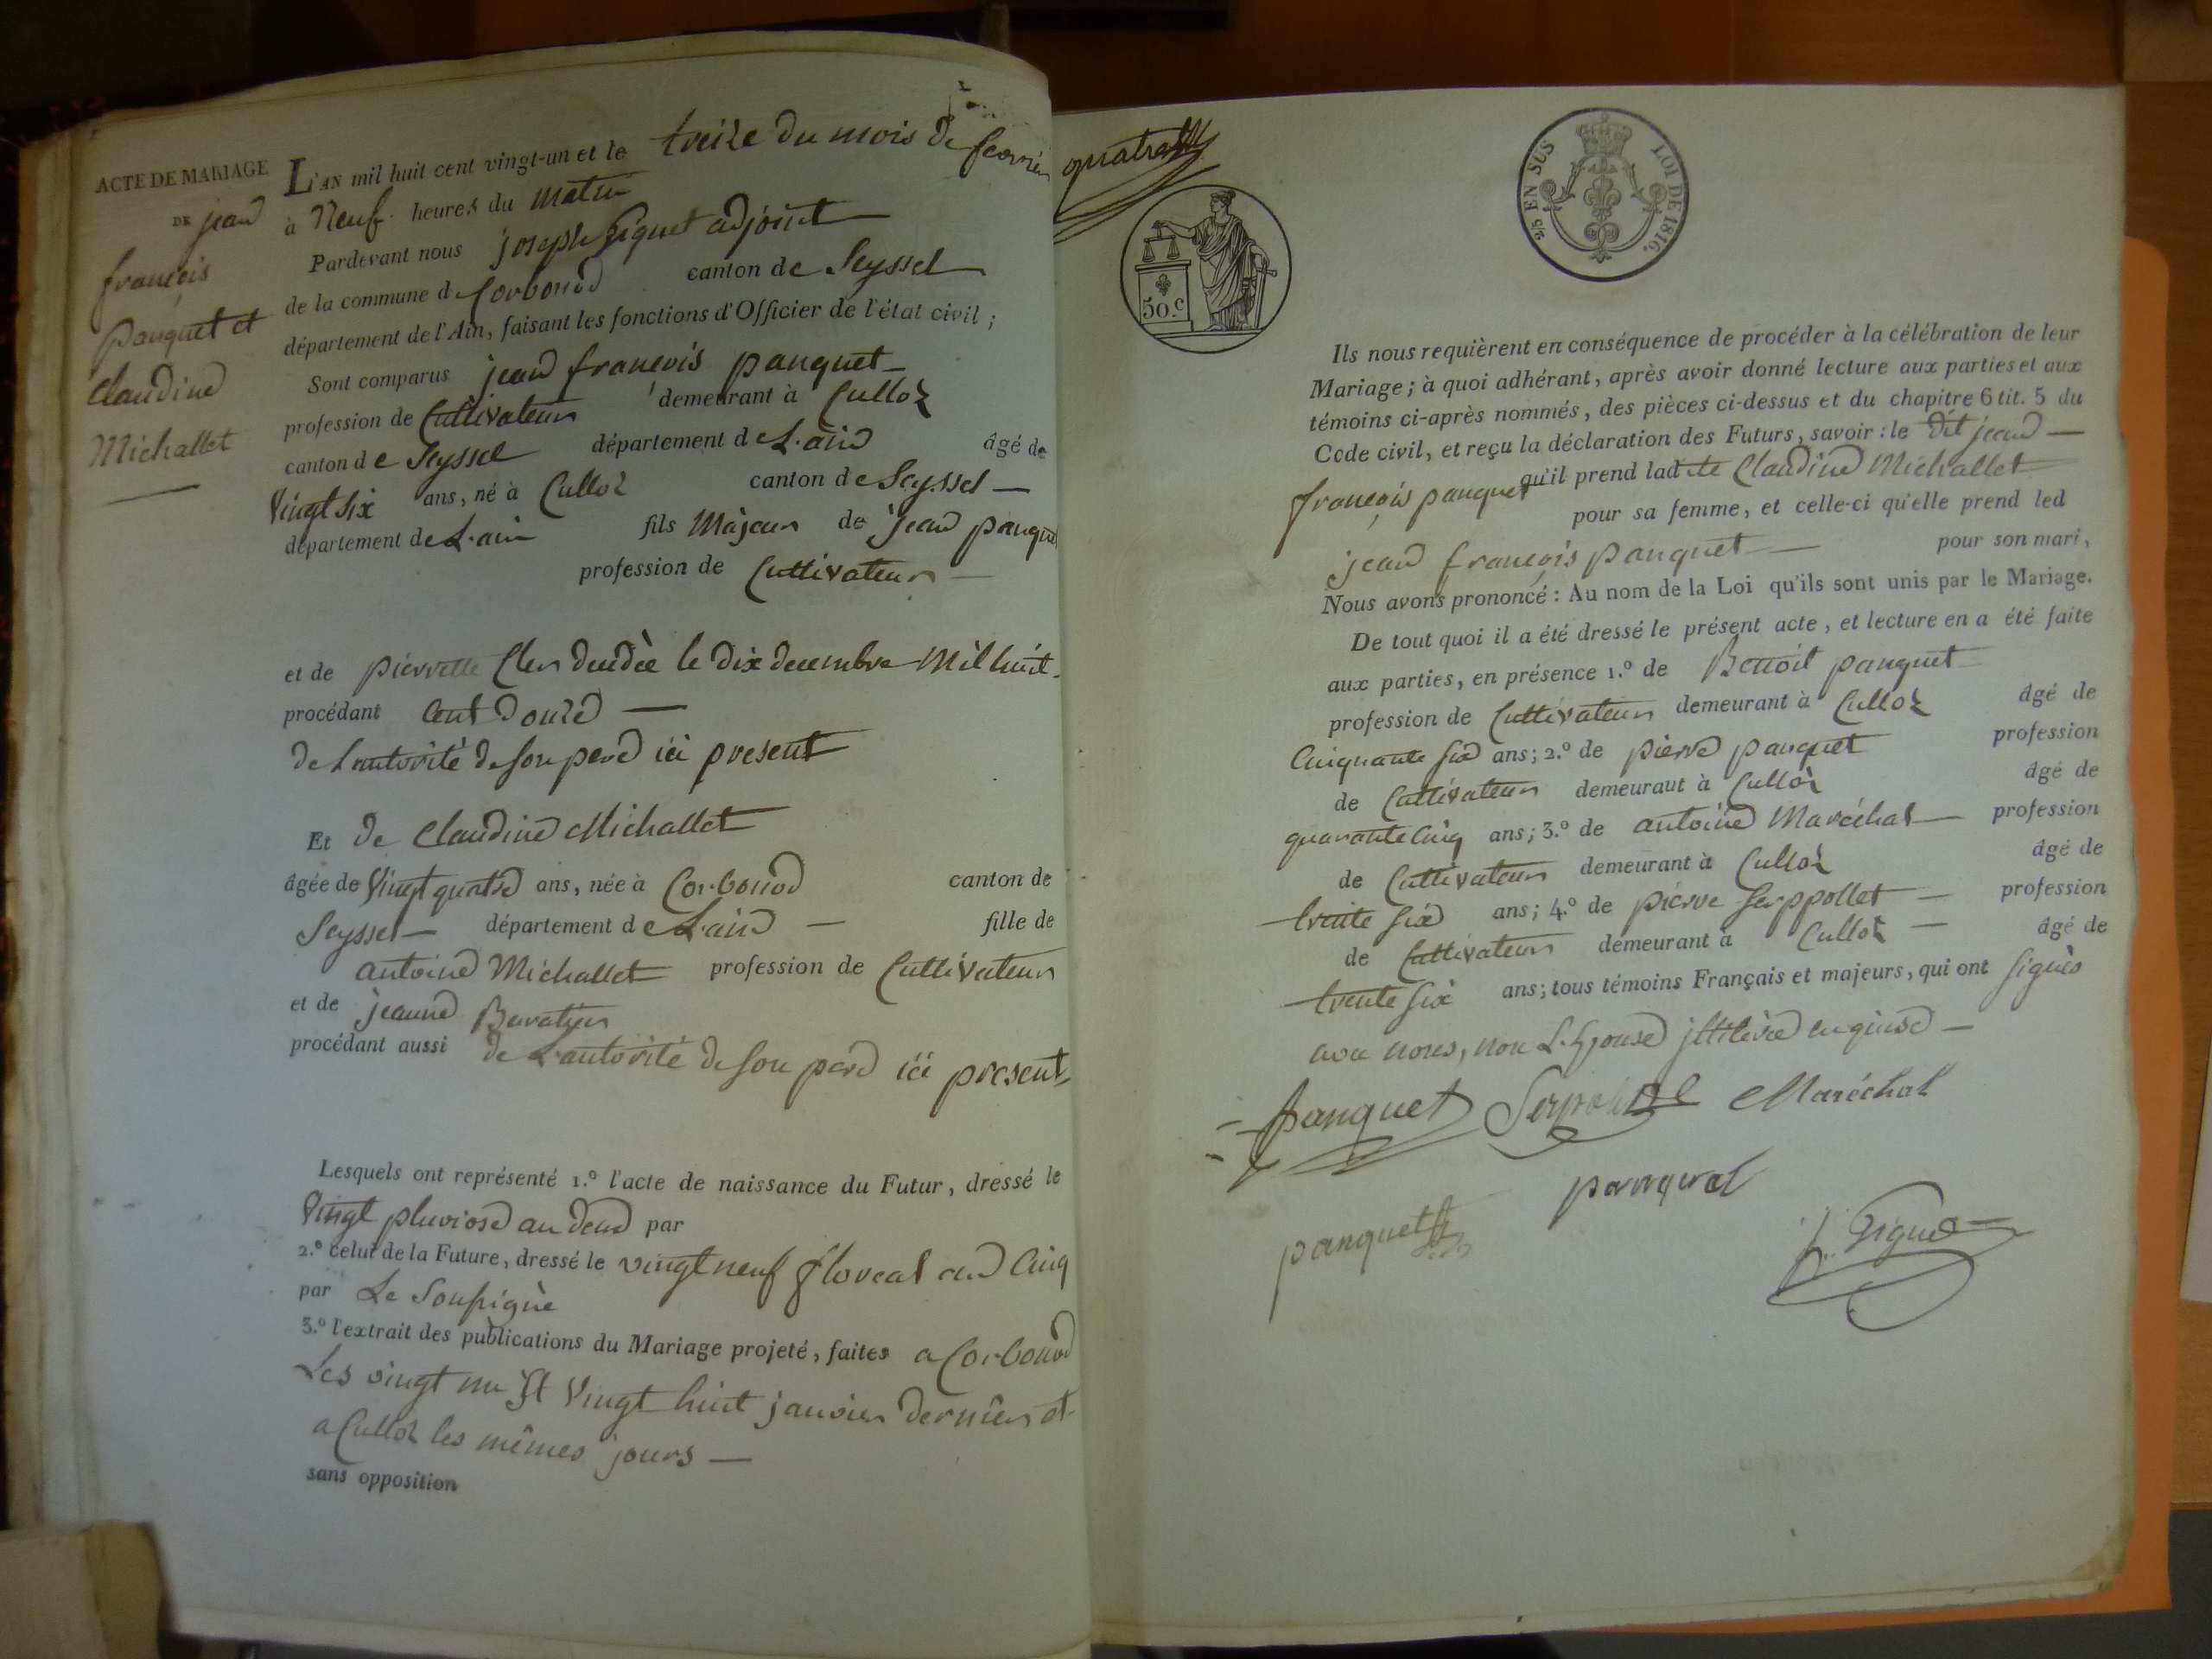 ACTE DE MARIAGE
DE jean
françois
panquet et
Claudine
Michallet
L'AN mil huit cent vingt-un et le treize du mois de fevrier
à Neuf heures du matin
Pardevant nous joseph Giguet adjoint
de la commune de Corbonod canton de Seyssel
département de l'Ain, faisant les fonctions d'Officier de l'état civil ;
Sont comparus jean françois panquet
profession de Cultivateur demeurant à Culloz
canton de Seyssel département de L'ain âgé de
Vingt six ans, né à Culloz canton de Seyssel
département de L'ain fils Majeur de jean panquet
profession de Cultivateur
et de pierrette Cler decedée le dix decembre Mil huit
procédant Cent Douze
de l'autorité de son pere ici present
Et de Claudine Michallet
âgée de Vingt quatre ans, née à Corbonod canton de
Seyssel département de L'ain fille de
antoine Michallet profession de Cultivateur
et de jeanne
procédant aussi de L'autorité de son pere ici present
Lesquels ont représenté 1.º l'acte de naissance du Futur, dressé le
Vingt pluviose an deux par
2.º celui de la Future, dressé le vingt neuf floreal an Cinq
par Le Soussigné
3.º l'extrait des publications du Mariage projeté, faites a Corbonod
Les vingt un Et Vingt huit janvier dernier et
a Culloz les mêmes jours
sans opposition
50.c
25 EN SUS LOI DE 1816.
Ils nous requièrent en conséquence de procéder à la célébration de leur
Mariage ; à quoi adhérant, après avoir donné lecture aux parties et aux
témoins ci-après nommés, des pièces ci-dessus et du chapitre 6 tit. 5 du
Code civil, et reçu la déclaration des Futurs, savoir : le dit jean
françois panquet qu'il prend ladite Claudine Michallet
pour sa femme, et celle-ci qu'elle prend led
jean françois panquet pour son mari,
Nous avons prononcé : Au nom de la Loi qu'ils sont unis par le Mariage.
De tout quoi il a été dressé le présent acte, et lecture en a été faite
aux parties, en présence 1.º de Benoit panquet
profession de Cultivateur demeurant à Culloz âgé de
Cinquante six ans ; 2.º de pierre panquet profession
de Cultivateur demeuraut à Culloz âgé de
quarante Cinq ans ; 3.º de antoine Maréchal profession
de Cultivateur demeurant à Culloz âgé de
trente six ans ; 4.º de pierre Serppollet profession
de Cultivateur demeurant à Culloz âgé de
trente six ans ; tous témoins Français et majeurs, qui ont signés
avec nous, non L'Epouse illiterée enquise
panquet Serpollet Maréchal
panquet
panquet
J. Giguet